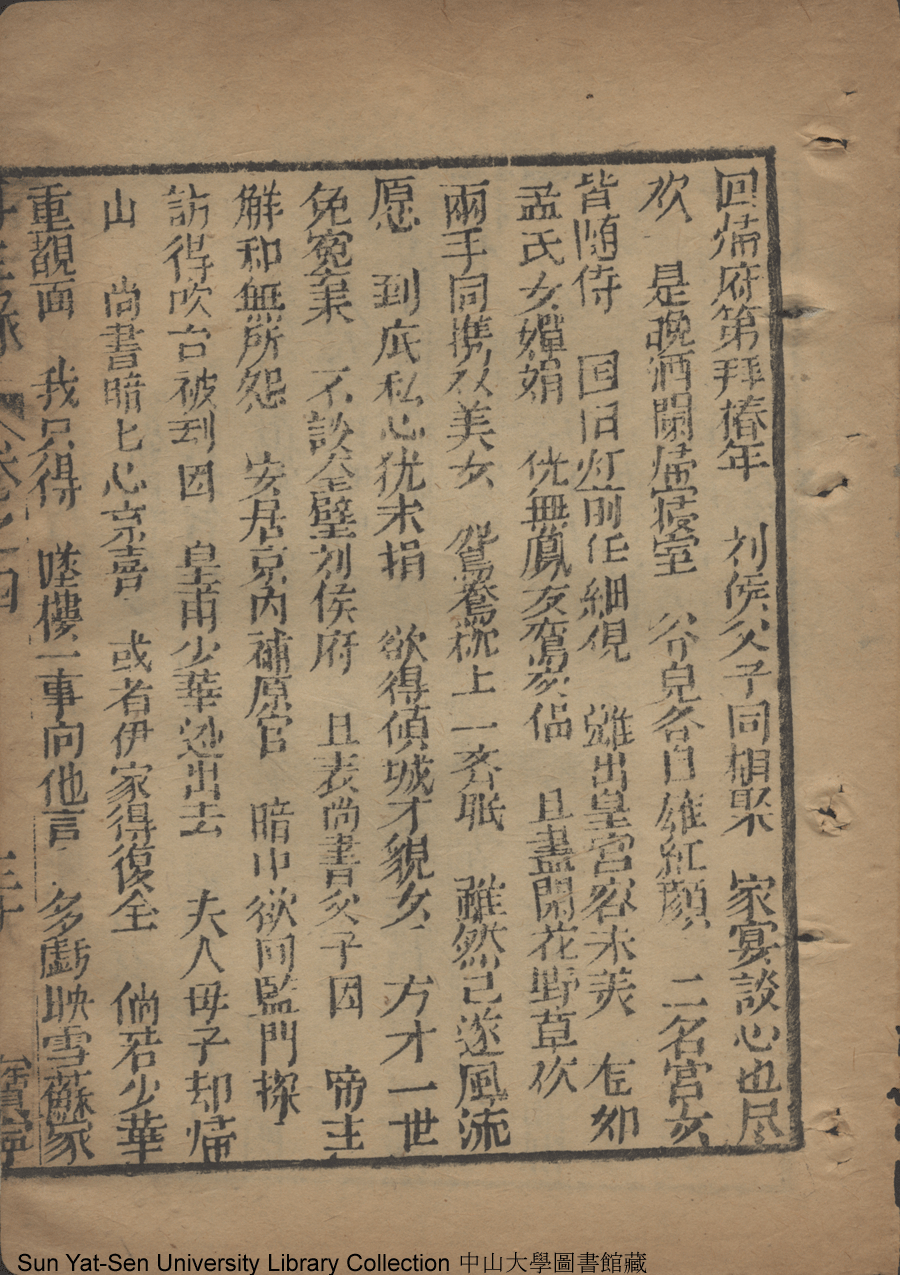 回歸府第拜椿年　刘侯父子同相聚　家宴談心也尽
欢　是晚酒闌㱕寢室　爷兒各自雄紅顔　二名宮女
皆随侍　国旧灯前仔細視　雖出皇宮容未美　怎如
孟氏女嬋娟　恍無鳳友鸞交侶　且盡閑花野草欢
兩手同携双美女　鴛鴦枕上一齐眠　雖然已遂風流
愿　到底私心犹未捐　欲得傾城才貌女　方才一世
免寃枼　不談全璧刘侯府　且表尚書父子因　帝主
觧和無所怨　安居京内補原官　暗中欲问監門探
訪得吹台被刧因　皇甫少華逃出去　夫人母子却歸
山　尚書暗匕心京喜　或者伊家得復全　倘若少華
重覩面　我只得　墜樓一事向他言　多虧映雪蘇家
再生緣　卷之四　三十　寳寧
Sun Yat-Sen University Library Collection 中山大學圖書館藏